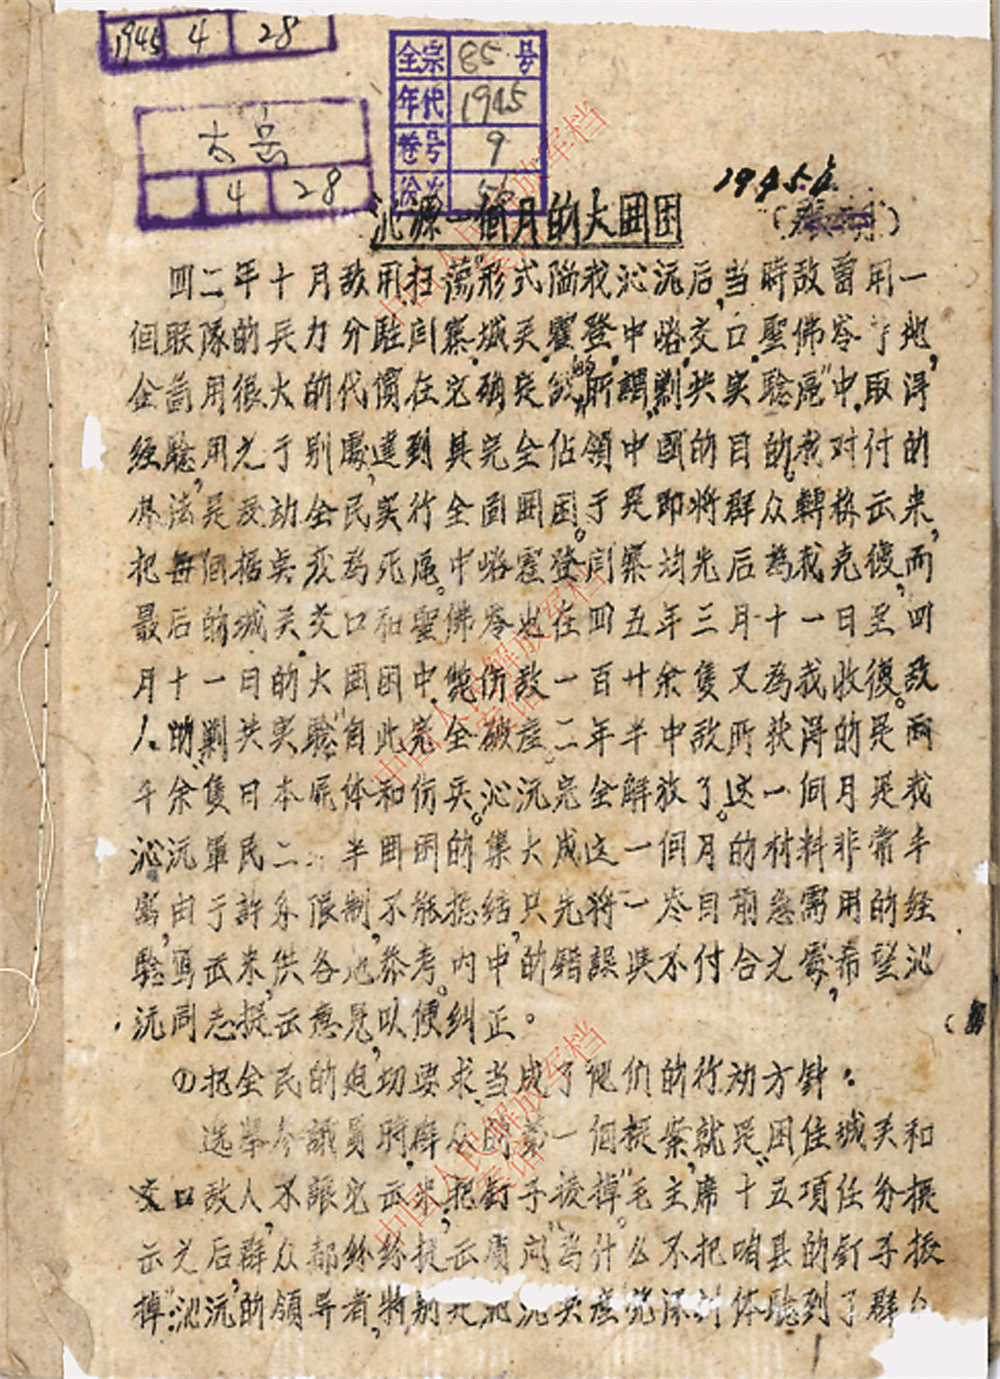 1945 4 28
全宗 85 号
年代 1945
卷号 9
份次
太岳
4 28
1945.4.
沁源一個月的大囲困
四二年十月敌用"扫荡"形式陷我沁沅后,当時敌曾用一
個联隊的兵力分駐閆寨.城关.霍登.中峪.交口.聖佛岺 地,
企啚用很大的代價在它确定的所謂"剿共实驗區"中取得
经驗,用之于别處,達到其完全佔領中國的目的。我对付的
办法是发动全民实行全面囲困。于是即将群众轉移出来,
把每個据奌 为死區。中峪霍登閆寨均先后為我克復,而
最后的城关.交口和聖佛岺也在四五年三月十一日至四
月十一日的大囲困中,斃伤敌一百廿余隻又為我收復。敌
人的"剿共实驗"自此完全破產。二年半中敌所获得的是兩
千余隻日本屍体和伤兵。沁沅完全解放了。这一個月是我
沁沅軍民二 半囲困的集大成这一個月的材料非常丰
富,由于許多限制,不能总结,只先将一些目前急需用的经
驗,写出来,供各地参考。内中的錯誤與不付合之處,希望沁
沅同志提出意見,以便纠正。
①把全民的廹切要求,当成了他们的行动方針:
选举参議員時群众的第一個提案就是"困住城关和
交口敌人,不讓它出来,把釘子拔掉"。毛主席十五項任务提
出之后,群众都纷纷提出質问"為什么不把咱县的釘子拔
掉"沁沅的領导者,特别是 沅共產党深刻体驗到了群
1
中国人民解放军档
中国人民解放军档
中国人民解放军档